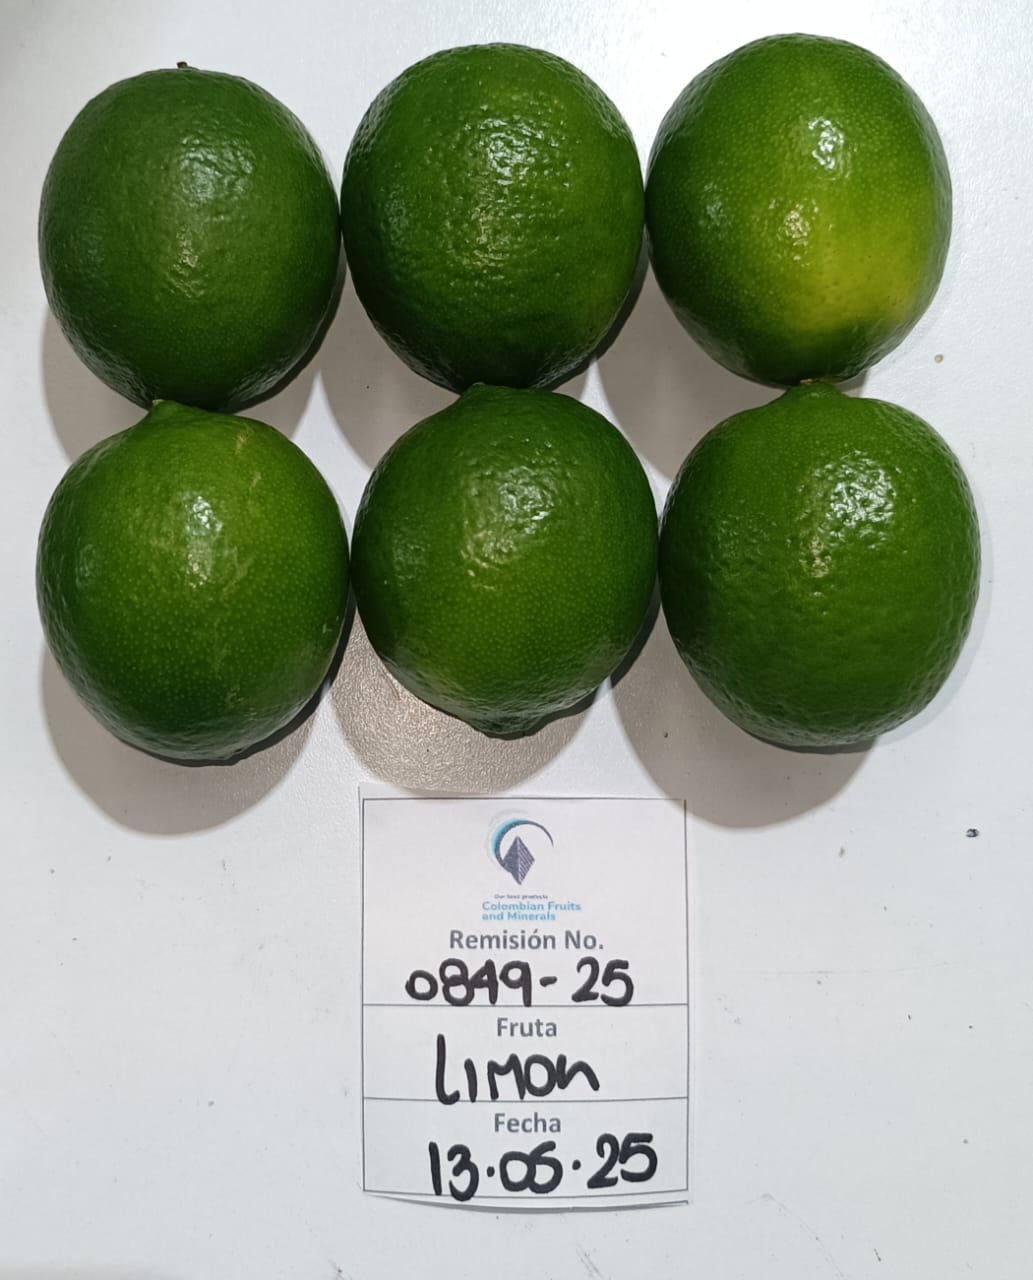 Our best products
Colombian Fruits
and Minerals
Remisión No.
0849-25
Fruta
LIMON
Fecha
13.05.25